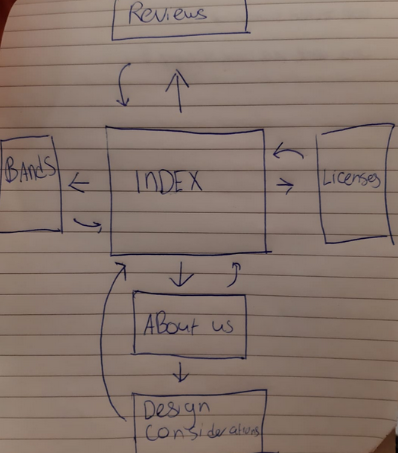 Reviews
BAndS
InDEX
Licenses
ABout us
Design
Considerations